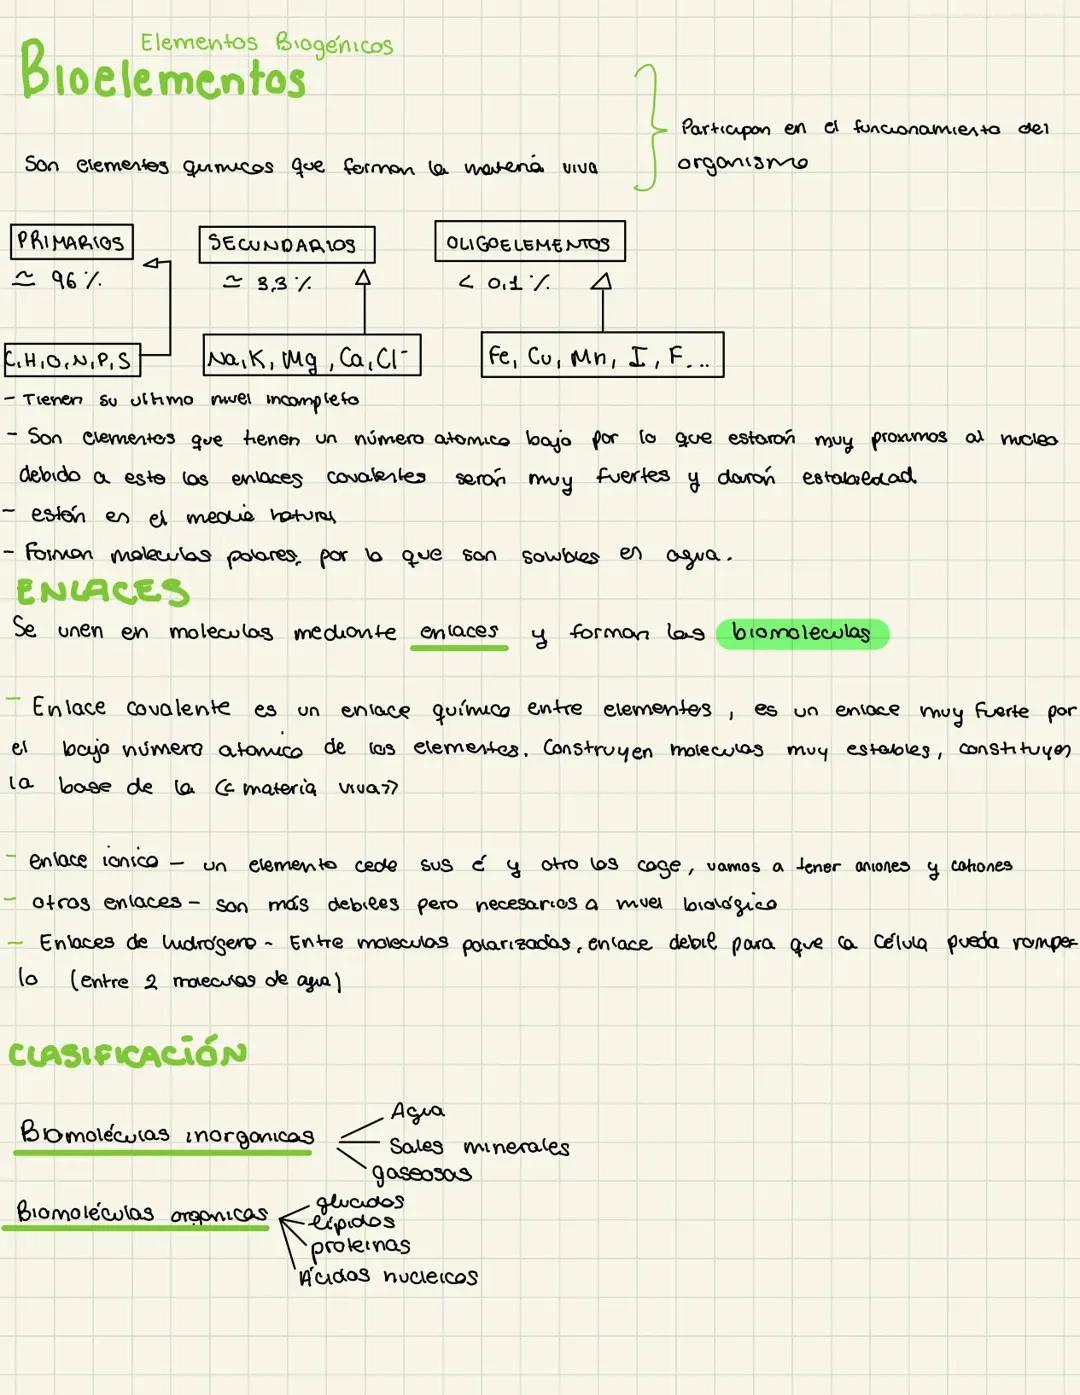 Elementos Biogénicos
Bioelementos
Participan en el funcionamiento del
organismo
Son elementos químicos que forman la materia viva
PRIMARIOS
SECUNDARIOS
OLIGOELEMENTOS
≃ 96 %
≃ 3,3 %
< 0,1 %
C,H,O,N,P,S
Na,K, Mg, Ca, Cl⁻
Fe, Cu, Mn, I, F...
- Tienen su ultimo nivel incompleto
- Son elementos que tienen un número atomico bajo por lo que estarán muy proximos al nucleo
debido a esto los enlaces covalentes serán muy fuertes y darán estabilidad.
- están en el medio natural
- Forman moleculas polares, por lo que son solubles en agua.
ENLACES
Se unen en moleculas mediante enlaces y forman las biomoleculas
- Enlace covalente es un enlace químico entre elementos, es un enlace muy fuerte por
el bajo número atomico de los elementos. Construyen moleculas muy estables, constituyen
la base de la << materia viva >>
- enlace ionico - un elemento cede sus é y otro los coge, vamos a tener aniones y cationes
- otros enlaces - son más debiles pero necesarios a nivel biológico
- Enlaces de hidrógeno - Entre moleculas polarizadas, enlace debil para que la célula pueda romper
lo (entre 2 moleculas de agua)
CLASIFICACIÓN
Agua
Biomoléculas inorganicas
Sales minerales
gaseosas
Biomoléculas organicas
glucidos
lípidos
proteinas
Ácidos nucleicos